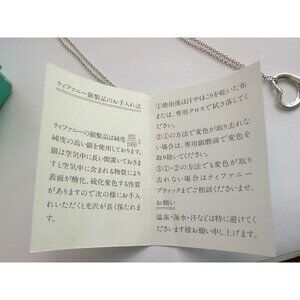 ティファニー銀製品のお手入れ法
ティファニーの銀製品は純度 925/1000 と
純度の高い銀を使用しております。
銀は空気中に長い間置いておきま
すと空気中に含まれる物質により
表面が酸化、硫化変色する性質
がありますので次の様にお手入
れいただくと光沢が長く保たれま
す。
①使用後は汗やほこりを乾いた布
または、専用クロスで拭き落してく
ださい。
②①の方法で変色が取り去れな
い場合は、専用銀磨液で変色を
取り除いてください。
③①・②の方法でも変色が取り
去れない場合はティファニーブ
ティックまでご相談くださいませ。
お願い
温泉・海水・汗などは特に避けてく
ださいます様お願い申し上げます。